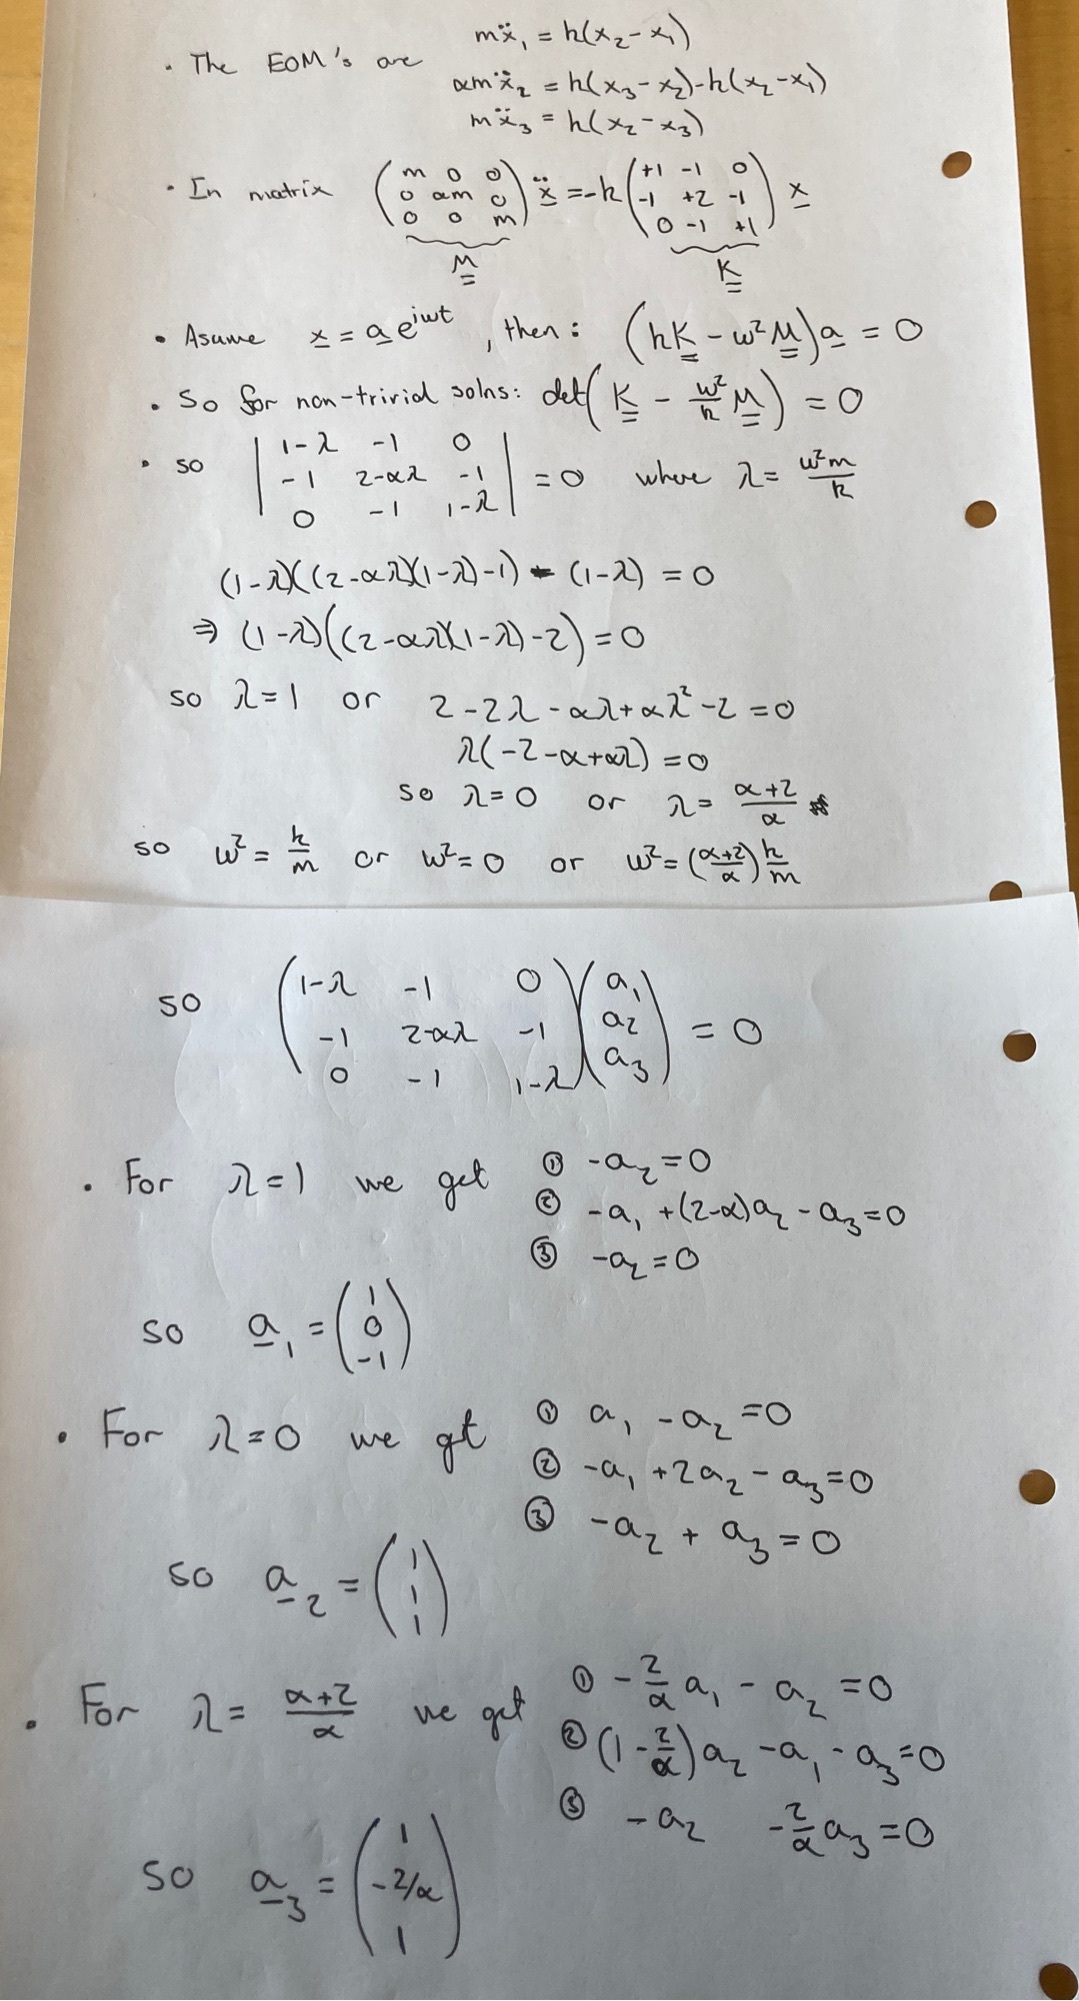 mẍ₁ = k(x₂-x₁)
• The EOM's are
αmẍ₂ = k(x₃-x₂)-k(x₂-x₁)
mẍ₃ = k(x₂-x₃)
• In matrix (m 0 0; 0 αm 0; 0 0 m) ẍ = -k (+1 -1 0; -1 +2 -1; 0 -1 +1) x
M K
• Asume x = a e^{iωt}, then: (kK - ω²M)a = 0
• So for non-trivial solns: det(K - ω²/k M) = 0
• so |1-λ -1 0; -1 2-αλ -1; 0 -1 1-λ| = 0 where λ = ω²m/k
(1-λ)((2-αλ)(1-λ)-1) - (1-λ) = 0
⇒ (1-λ)((2-αλ)(1-λ)-2) = 0
so λ=1 or 2-2λ-αλ+αλ²-2=0
λ(-2-α+αλ)=0
so λ=0 or λ= (α+2)/α
so ω² = k/m or ω²=0 or ω²=((α+2)/α) k/m
so (1-λ -1 0; -1 2-αλ -1; 0 -1 1-λ)(a₁; a₂; a₃) = 0
• For λ=1 we get ① -a₂=0
② -a₁+(2-α)a₂-a₃=0
③ -a₂=0
so a₁ = (1; 0; -1)
• For λ=0 we gt ① a₁-a₂=0
② -a₁+2a₂-a₃=0
③ -a₂+a₃=0
so a₂ = (1; 1; 1)
• For λ= (α+2)/α we get ① -2/α a₁ - a₂ = 0
② (1-2/α)a₂-a₁-a₃=0
③ -a₂ -2/α a₃=0
so a₃ = (1; -2/α; 1)